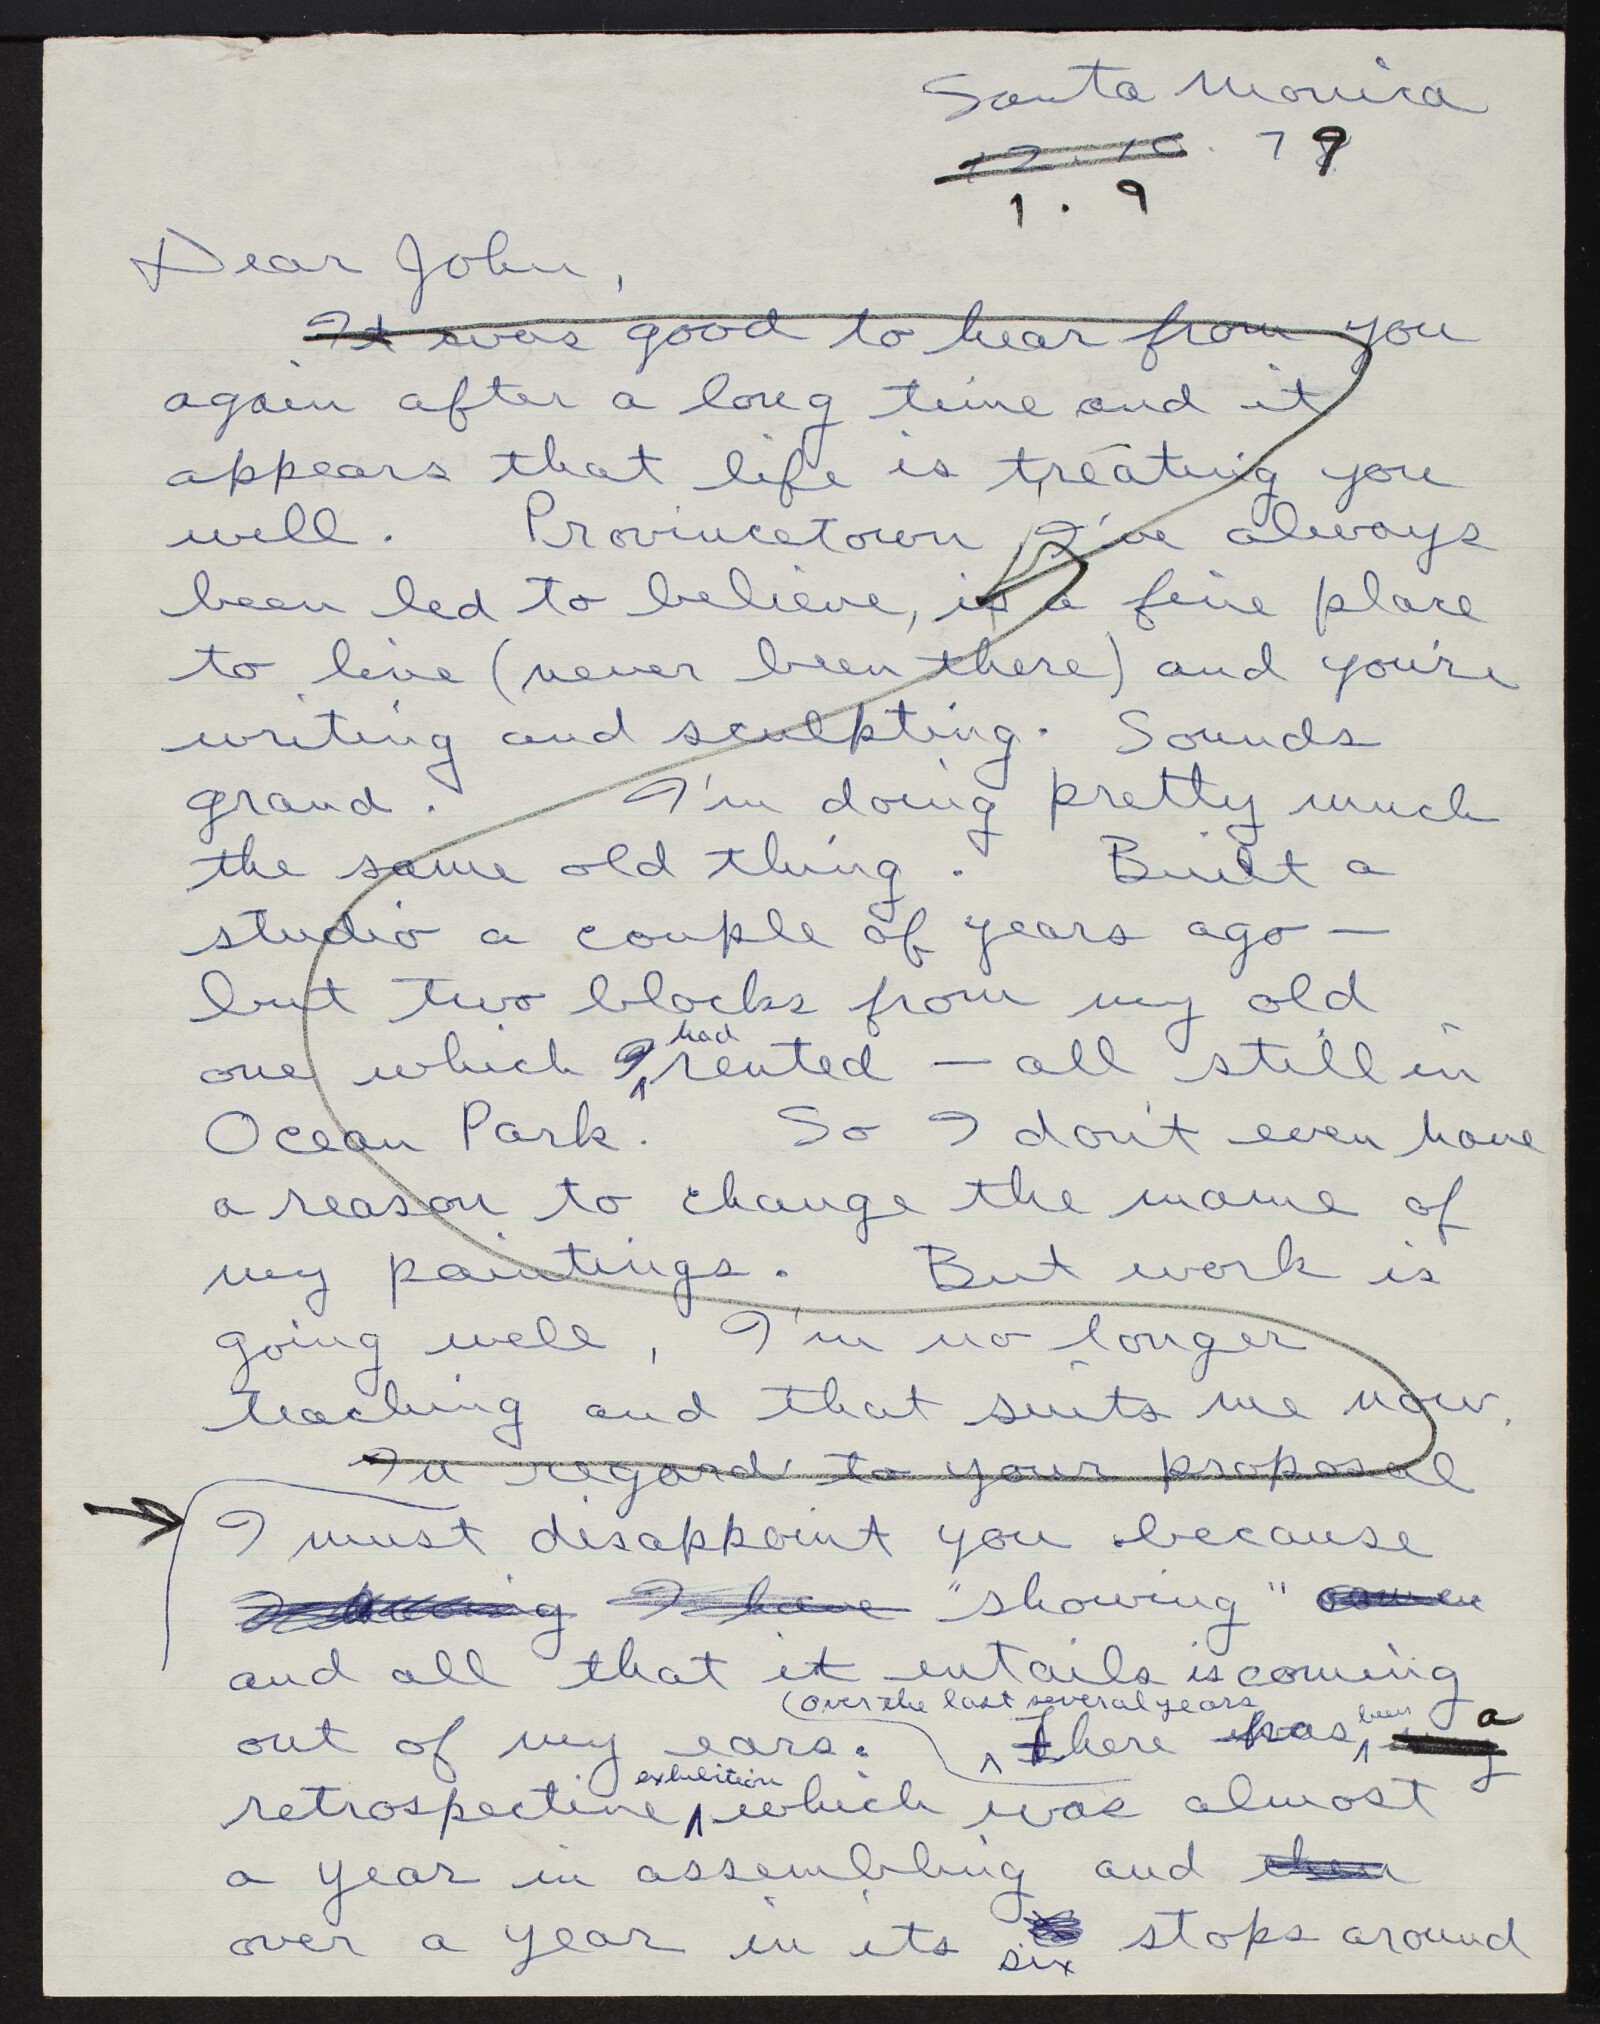 Santa Monica
12.10.79
1.9
Dear John,
It was good to hear from you
again after a long time and it
appears that life is treating you
well. Provincetown, I've always
been led to believe, is a fine place
to live (never been there) and you're
writing and sculpting. Sounds
grand. I'm doing pretty much
the same old thing. Built a
studio a couple of years ago —
but two blocks from my old
one which I had rented — all still in
Ocean Park. So I don't even have
a reason to change the name of
my paintings. But work is
going well, I'm no longer
teaching and that suits me now.
In regard to your proposal
I must disappoint you because
I have "showing"
and all that it entails is coming
out of my ears. (over the last several years there has been a
retrospective exhibition which was almost
a year in assembling and then
over a year in its six stops around